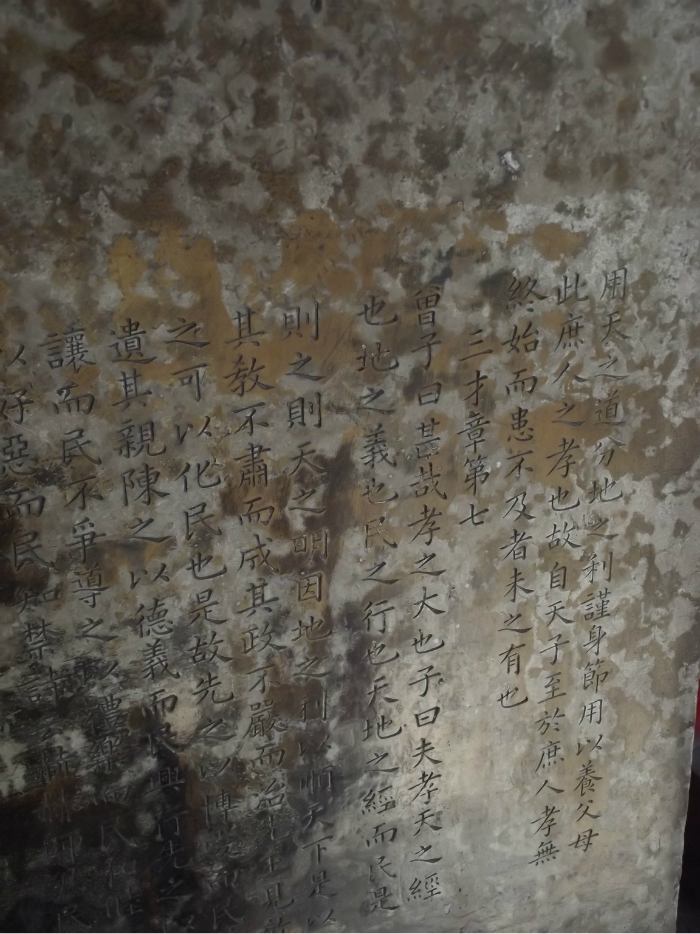 用天之道分地之利謹身節用以養父母
此庶人之孝也故自天子至於庶人孝無
終始而患不及者未之有也
三才章第七
曾子曰甚哉孝之大也子曰夫孝天之經
也地之義也民之行也天地之經而民是
則之則天之明因地之利以順天下是以
其教不肅而成其政不嚴而治先王見
之可以化民也是故先之以博愛而民
遺其親陳之以德義而民興行先之
讓而民不爭導之以禮樂而民和睦
以好惡而民知禁詩云